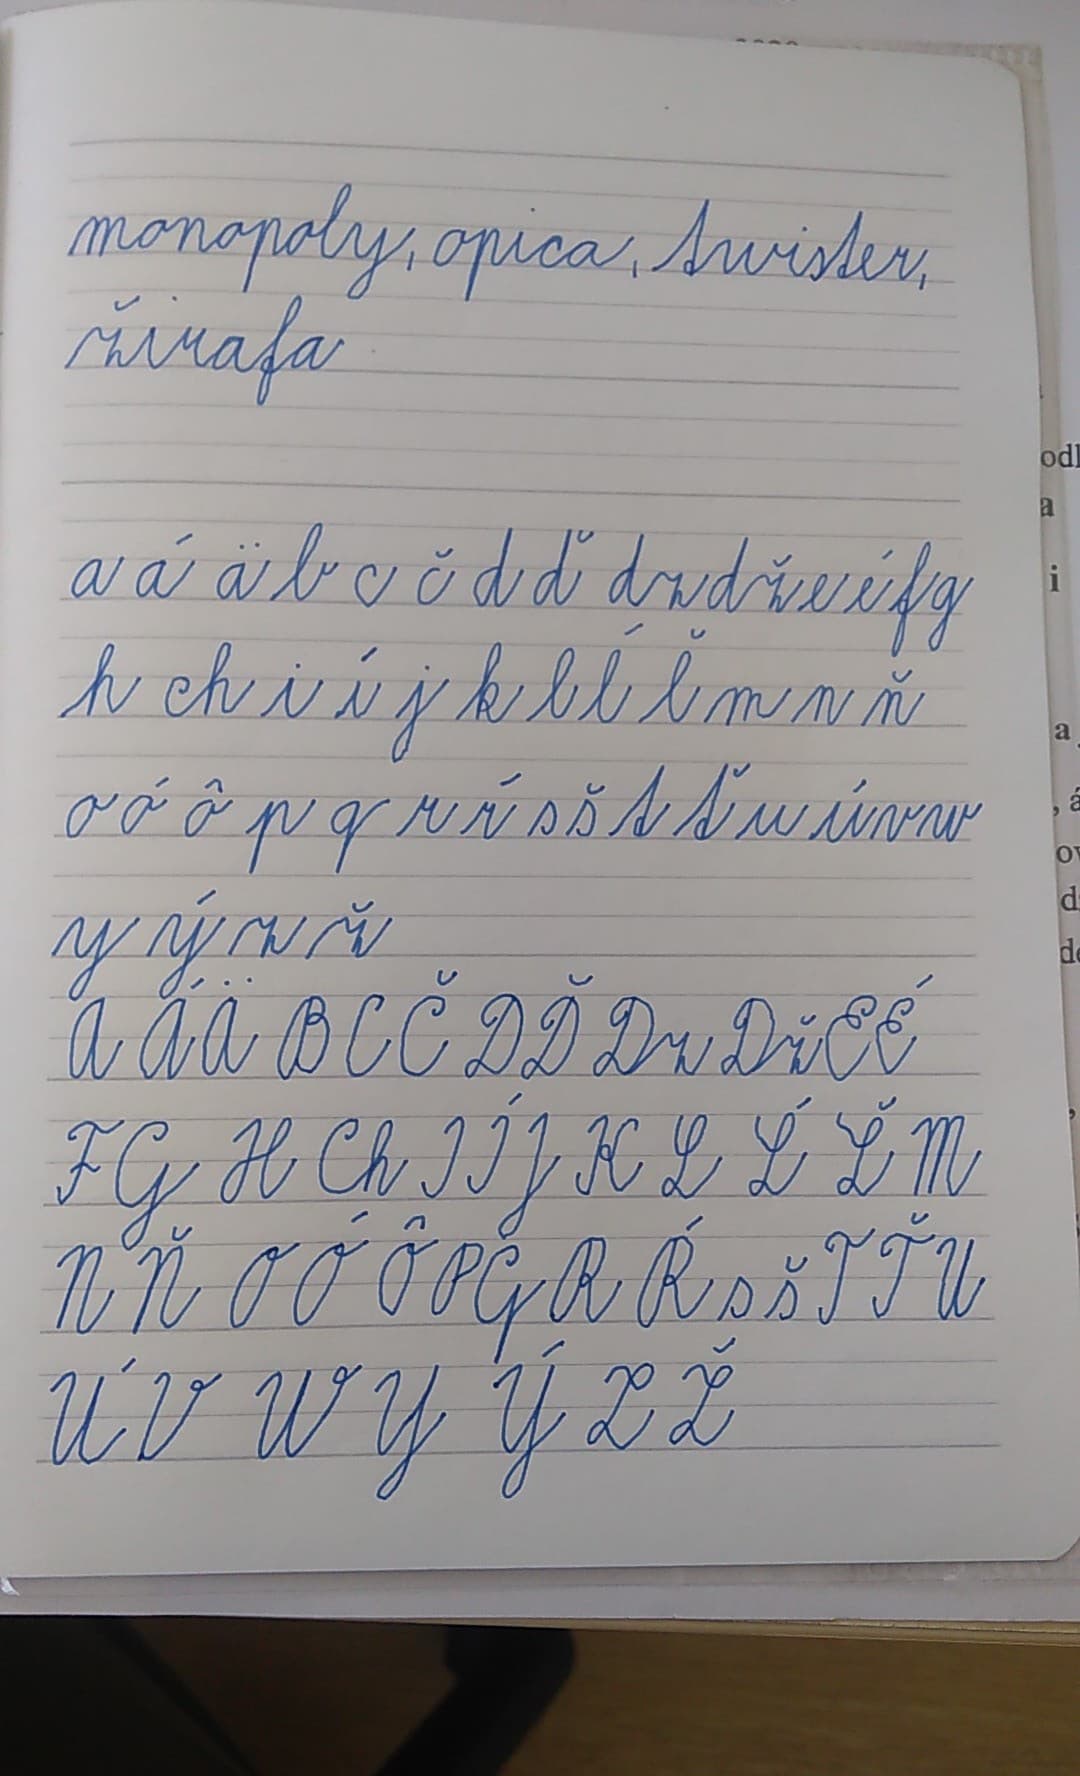 monopoly, opica, twister,
žirafa
a á ä b c č d ď dz dž e é f g
h ch i í j k l ĺ ľ m n ň
o ó ô p q r ŕ s š t ť u ú v w
y ý z ž
A Á Ä B C Č D Ď Dz Dž E É
F G H Ch I Í J K L Ĺ Ľ M
N Ň O Ó Ô P Q R Ŕ S Š T Ť U
Ú V W Y Ý Z Ž
odl
a
i
a
, á
ov
d
de